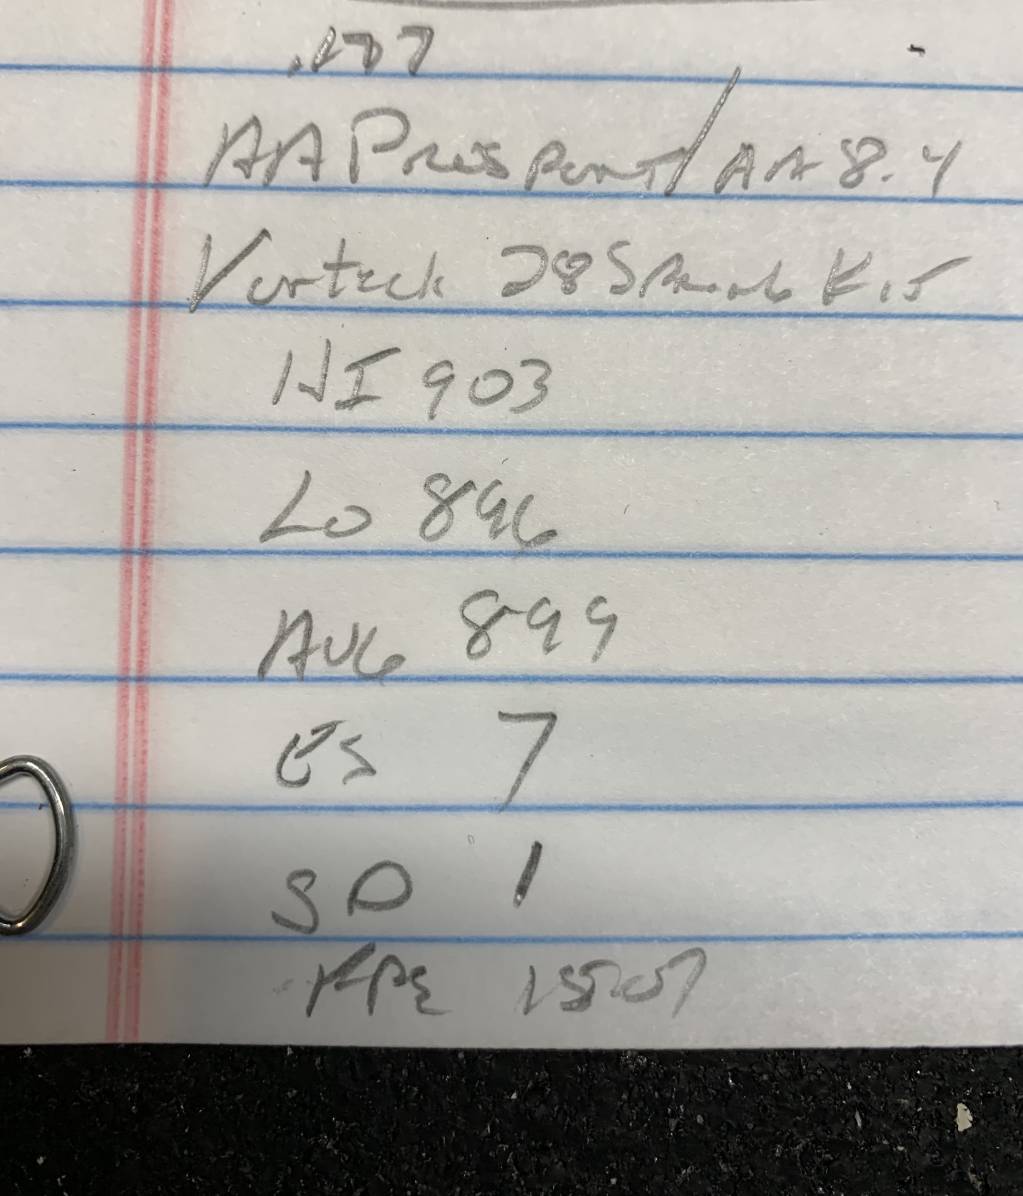 .177
AA Prosport/AA 8.4
Vorteck 28 Spring Kit
HI 903
Lo 896
AVG 899
ES 7
SD 1
FPE 15.07